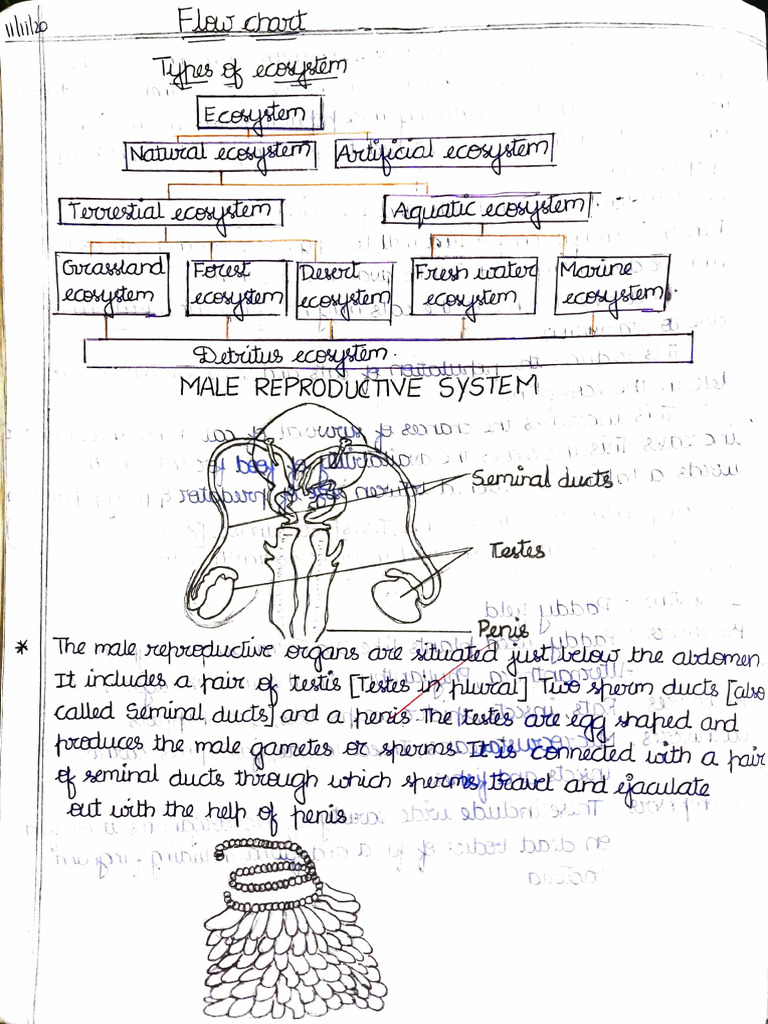 11/11/20
Flow chart
Types of ecosystem
Ecosystem
Natural ecosystem Artificial ecosystem
Terrestial ecosystem Aquatic ecosystem
Grassland ecosystem
Forest ecosystem
Desert ecosystem
Fresh water ecosystem
Marine ecosystem
Detritus ecosystem.
MALE REPRODUCTIVE SYSTEM
Seminal ducts
Testes
Penis
* The male reproductive organs are situated just below the abdomen
It includes a pair of testis [Testes in plural] Two sperm ducts [also
called Seminal ducts] and a penis. The testes are egg shaped and
produces the male gametes or sperms. It is connected with a pair
of seminal ducts through which sperms travel and ejaculate
out with the help of penis